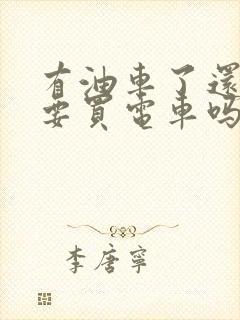 有油車了還
要買電車嗎
李唐寧